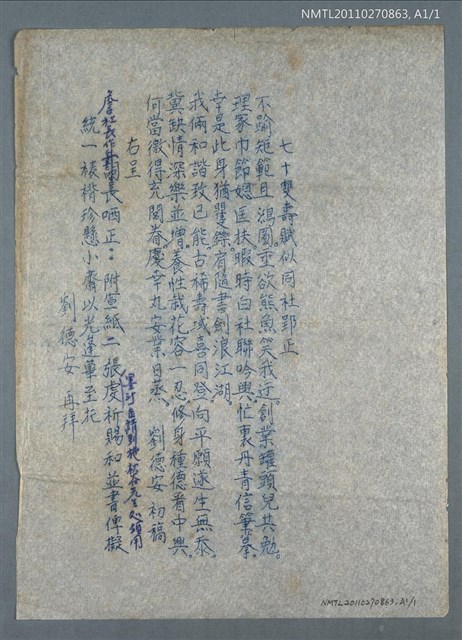 NMTL20110270863, A1/1
七十雙壽賦似同社郢正
不踰矩範且鴻圖、乖欲熊魚笑我迂。創業罐頭兒共勉。
理家巾節媳匡扶。暇時白社聯吟興、忙裏丹青信筆摹。
幸是此身猶矍鑠、有隨書劍浪江湖。
我倆和諧致已能、古稀壽域喜同登、向平願遂生無忝。
冀缺情深樂並增、養性栽花容一忍、修身種德看中興。
何當徵得充閭眷、慶幸丸安業日蒸、 劉德安 初稿
右呈
詹社長作 長哂正： 附宣紙二張虔祈賜和並書俾擬
統一裱楷珍懸小齋以光蓬蓽至托
劉德安 再拜
NMTL20110270863, A1/1